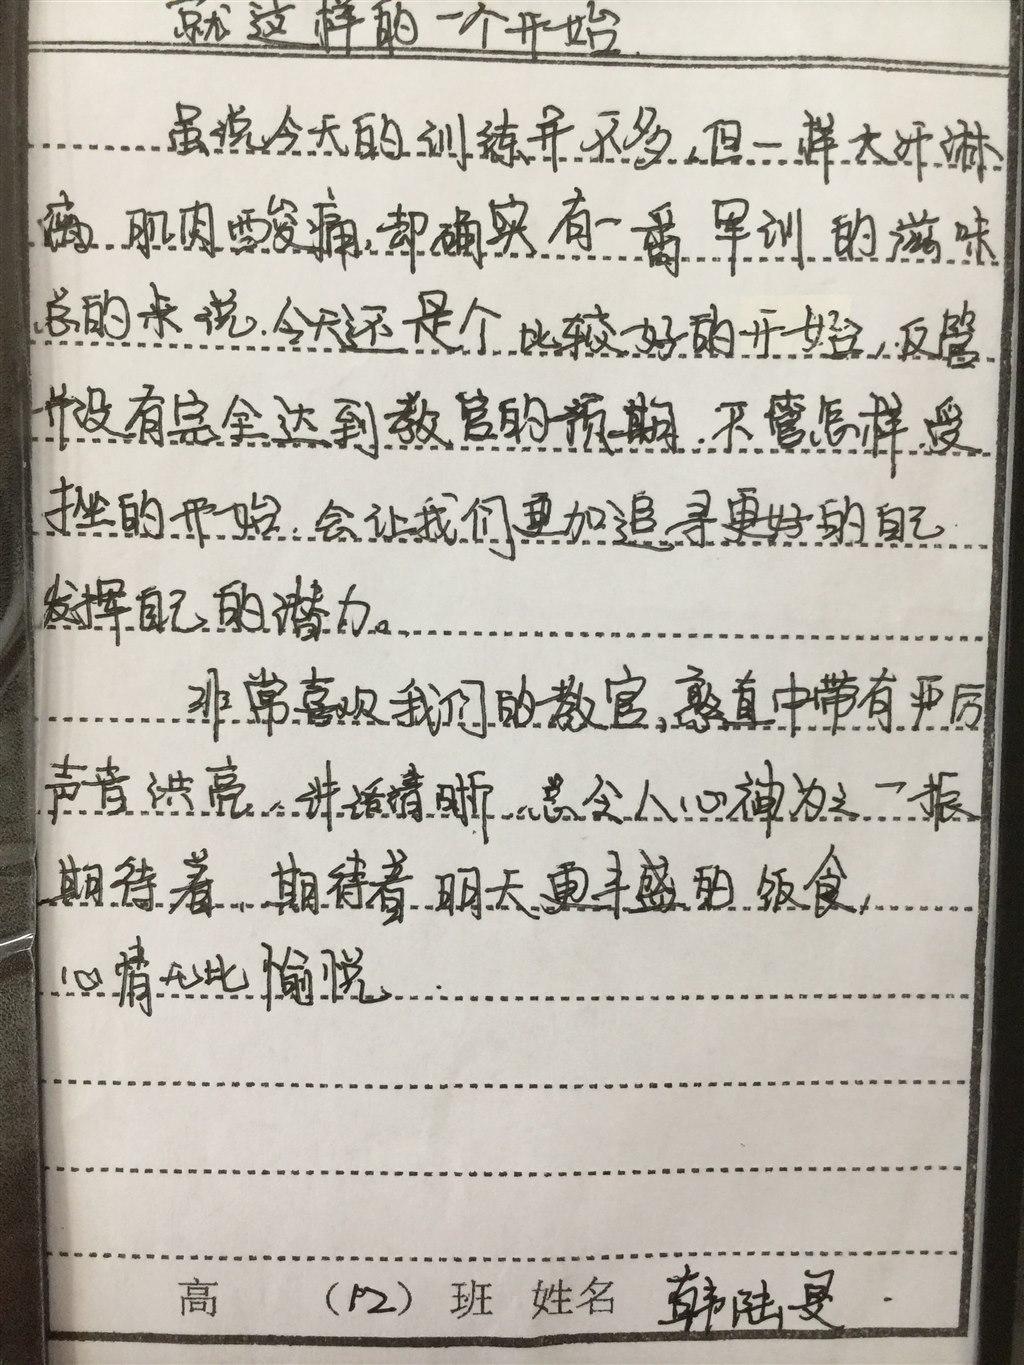 就这样的一个开始.
虽说今天的训练并不多,但一样大汗淋
漓、肌肉酸痛,却确实有一番军训的滋味
总的来说.今天还是个比较好的开始,反管
并没有完全达到教官的预期.不管怎样.受
挫的开始.会让我们更加追寻更好的自己.
发挥自己的潜力。
非常喜欢我们的教官,憨直中带有严厉
声音洪亮.讲话清晰.总令人心神为之一振
期待着.期待着明天更丰盛的饭食,
心情无比愉悦.
高 （12）班 姓名 韩陆曼